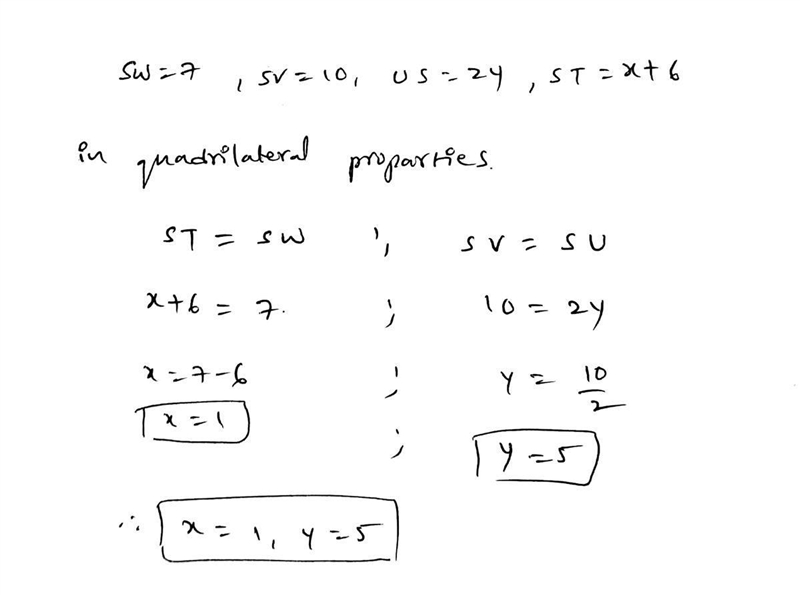 SW = 7 , SV = 10, US = 2y , ST = x + 6
in quadrilateral proparties.
ST = SW ; SV = SU
x + 6 = 7. ; 10 = 2y
x = 7 - 6 ; y = 10/2
x = 1 ; y = 5
∴ x = 1, y = 5